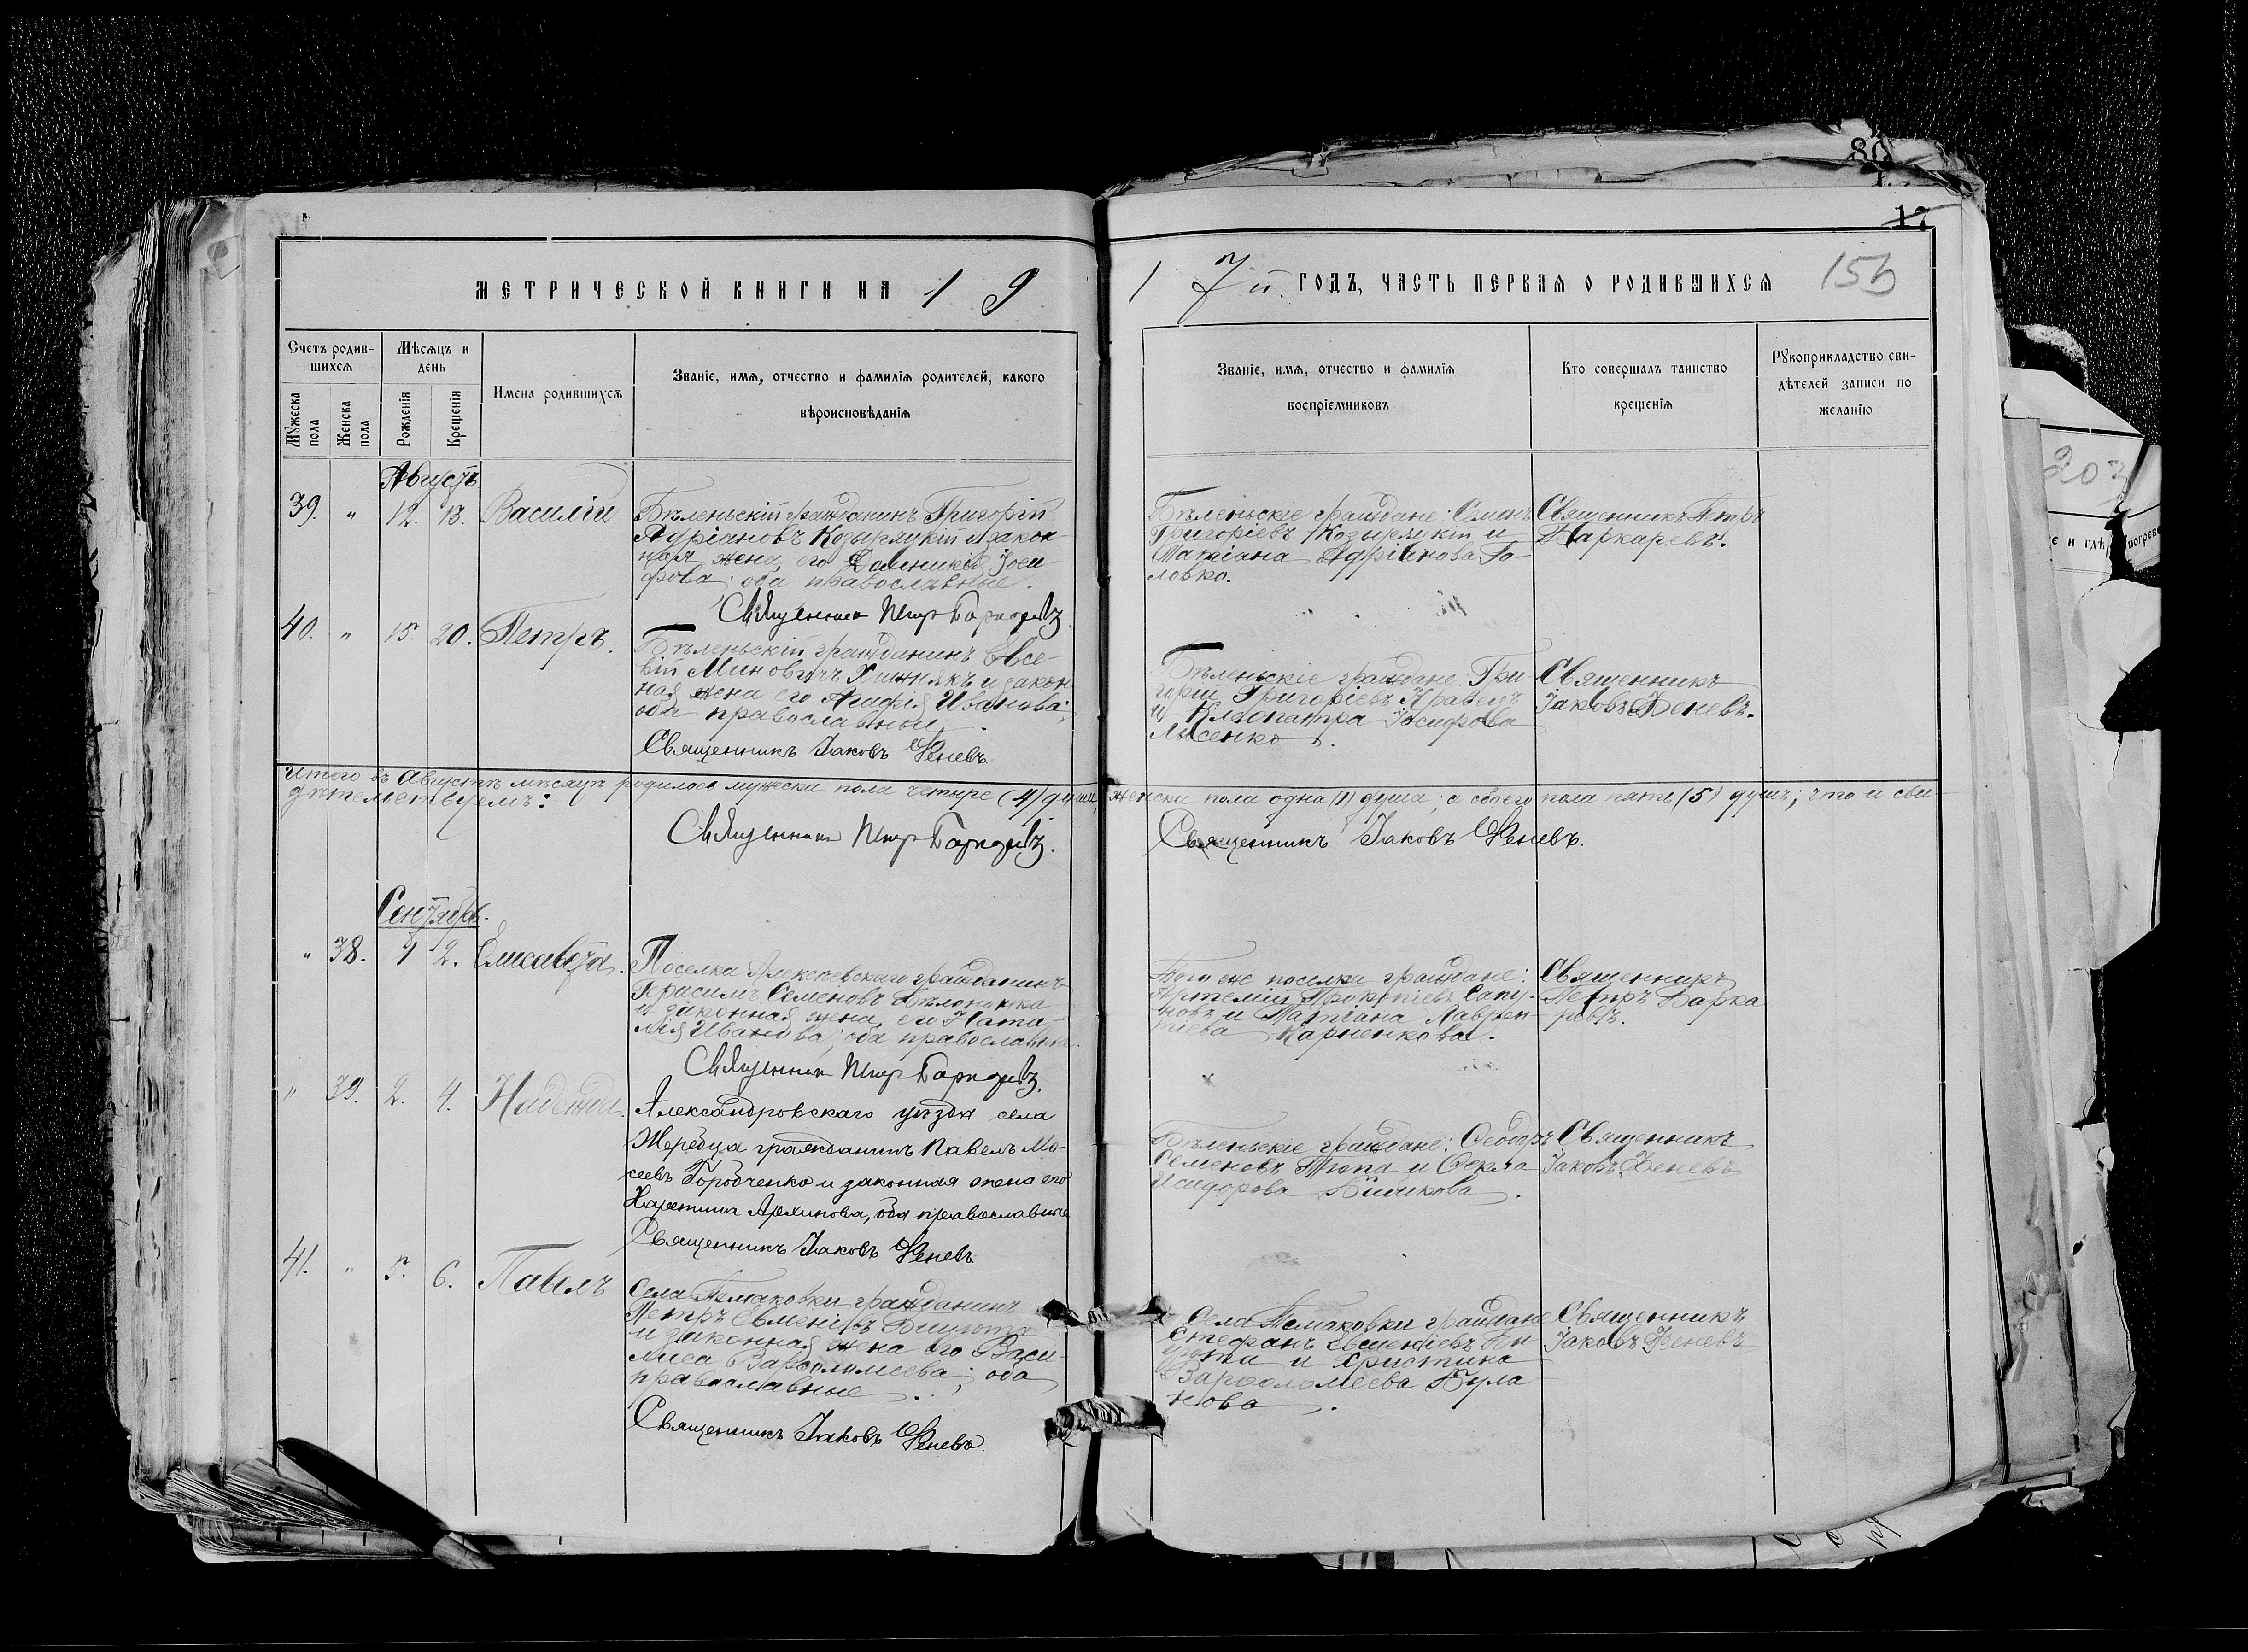 80
17
МЕТРИЧЕСКОЙ КНИГИ НА 1 9
1 7 й. ГОДЪ, ЧАСТЬ ПЕРВАЯ О РОДИВШИХСЯ
155
Счетъ родив-
шихся
Мѣсяцъ и
день
Мужеска
пола
Женска
пола
Рожденія
Крещенія
Имена родившихся
Званіе, имя, отчество и фамилія родителей, какого
вѣроисповѣданія
Званіе, имя, отчество и фамилія
воспріемниковъ
Кто совершалъ таинство
крещенія
Рукоприкладство сви-
дѣтелей записи по
желанію
Августъ
39. " 12. 13. Василій
Бѣленьскій гражданинъ Григорій
Адріановъ Козырицкій и закон-
ная жена его Домникія Іоси-
фова; оба православные.
Священникъ Петръ Баркаревъ.
Бѣленьскіе граждане: Семенъ
Григоріевъ Козырицкій и
Татіана Адріанова Го-
ловко.
Священникъ Петръ
Баркаревъ.
40. " 15. 20. Петръ.
Бѣленьскій гражданинъ Евсе-
вій Миновичъ Хижнякъ и закон-
ная жена его Агафія Иванова;
оба православные.
Священникъ Іаковъ Феневъ.
Бѣленьскіе граждане: Гри-
горій Григоріевъ Кравецъ
и Клеопатра Іосифова
Лысенко.
Священникъ
Іаковъ Феневъ.
Итого въ Августѣ мѣсяцѣ родилось мужеска пола четыре (4) души, женска пола одна (1) душа; а обоего пола пять (5) душъ; что и сви-
дѣтельствуемъ:
Священникъ Петръ Баркаревъ.
Священникъ Іаковъ Феневъ.
Сентябрь.
" 38. 1 2. Елисавета.
Поселка Алексѣевскаго гражданинъ
Герасимъ Семеновъ Бѣлоножка
и законная жена его Ната-
лія Иванова; оба православные.
Священникъ Петръ Баркаревъ.
Того же поселка граждане:
Артемій Прокопіевъ Сапу-
новъ и Татіана Лаврен-
тіева Карпенкова.
Священникъ
Петръ Барка
ревъ.
" 39. 2. 4. Надежда.
Александровскаго уѣзда села
Жеребца гражданинъ Павелъ Мо-
сеевъ Бородченко и законная жена его
Харитина Архипова, оба православные
Священникъ Іаковъ Феневъ.
Бѣленьскіе граждане: Ѳеодоръ
Семеновъ Тюпа и Ѳекла
Исидорова Бѣликова.
Священникъ
Іаковъ Феневъ
41. " 5. 6. Павелъ
Села Томаковки гражданинъ
Петръ Евменіевъ Бицюта
и законная жена его Васи-
лиса Варфоломеева; оба
православные.
Священникъ Іаковъ Феневъ.
Села Томаковки граждане
Стефанъ Евменіевъ Би
цюта и Христина
Варфоломеева Була
нова.
Священникъ
Іаковъ Феневъ
203
е и гдѣ погребе